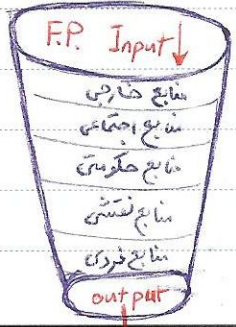 F.P. Input
منابع خارجی
منابع اجتماعی
منابع حکومتی
منابع نقشی
منابع فردی
output